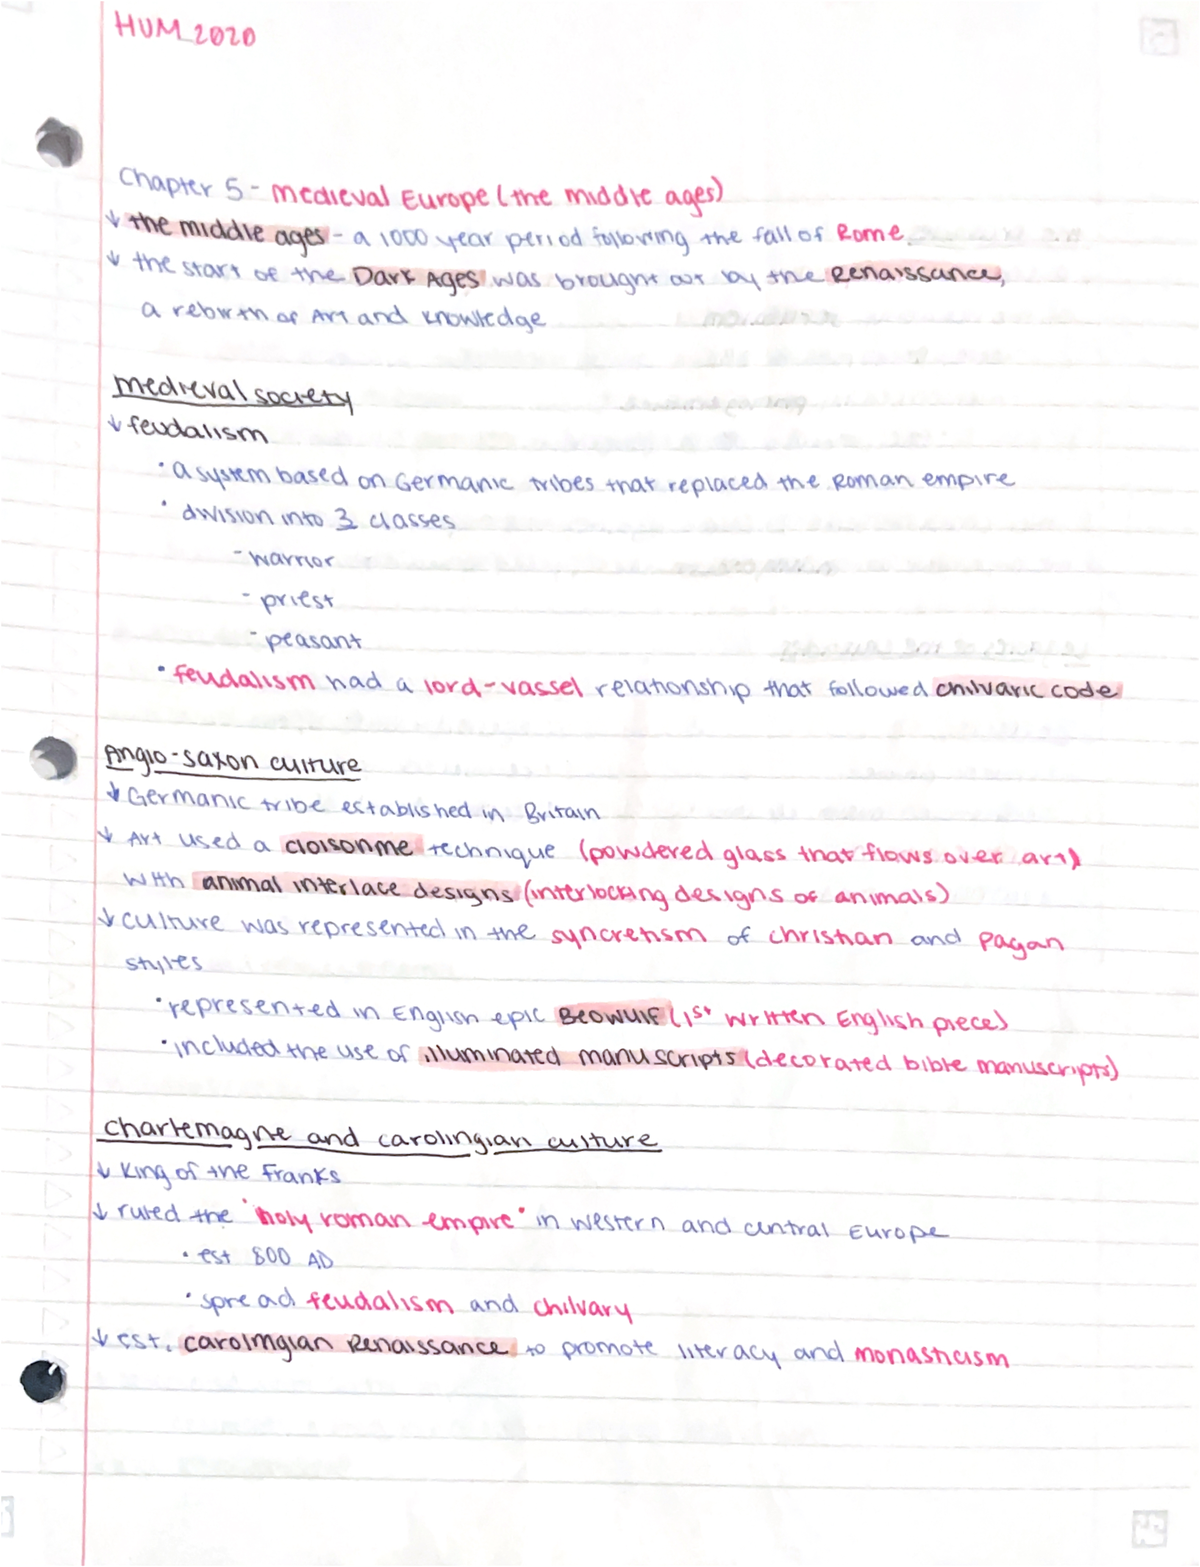 HUM 2020
Chapter 5 - Medieval Europe (the middle ages)
↓ the middle ages - a 1000 year period following the fall of Rome
↓ the start of the Dark Ages was brought out by the Renaissance,
a rebirth of Art and knowledge
medieval society
↓ feudalism
• a system based on Germanic tribes that replaced the Roman empire
• division into 3 classes
- warrior
- priest
- peasant
• feudalism had a lord-vassel relationship that followed chilvaric code
Anglo-saxon culture
↓ Germanic tribe established in Britain
↓ Art used a cloisonme technique (powdered glass that flows over art)
with animal interlace designs (interlocking designs of animals)
↓ culture was represented in the syncretism of christian and pagan
styles
• represented in English epic Beowulf (1st written English piece)
• included the use of illuminated manuscripts (decorated bible manuscripts)
Charlemagne and carolingian culture
↓ King of the Franks
↓ ruled the "holy roman empire" in western and central Europe
• est 800 AD
• spread feudalism and chilvary
↓ est. carolingian Renaissance to promote literacy and monasticism